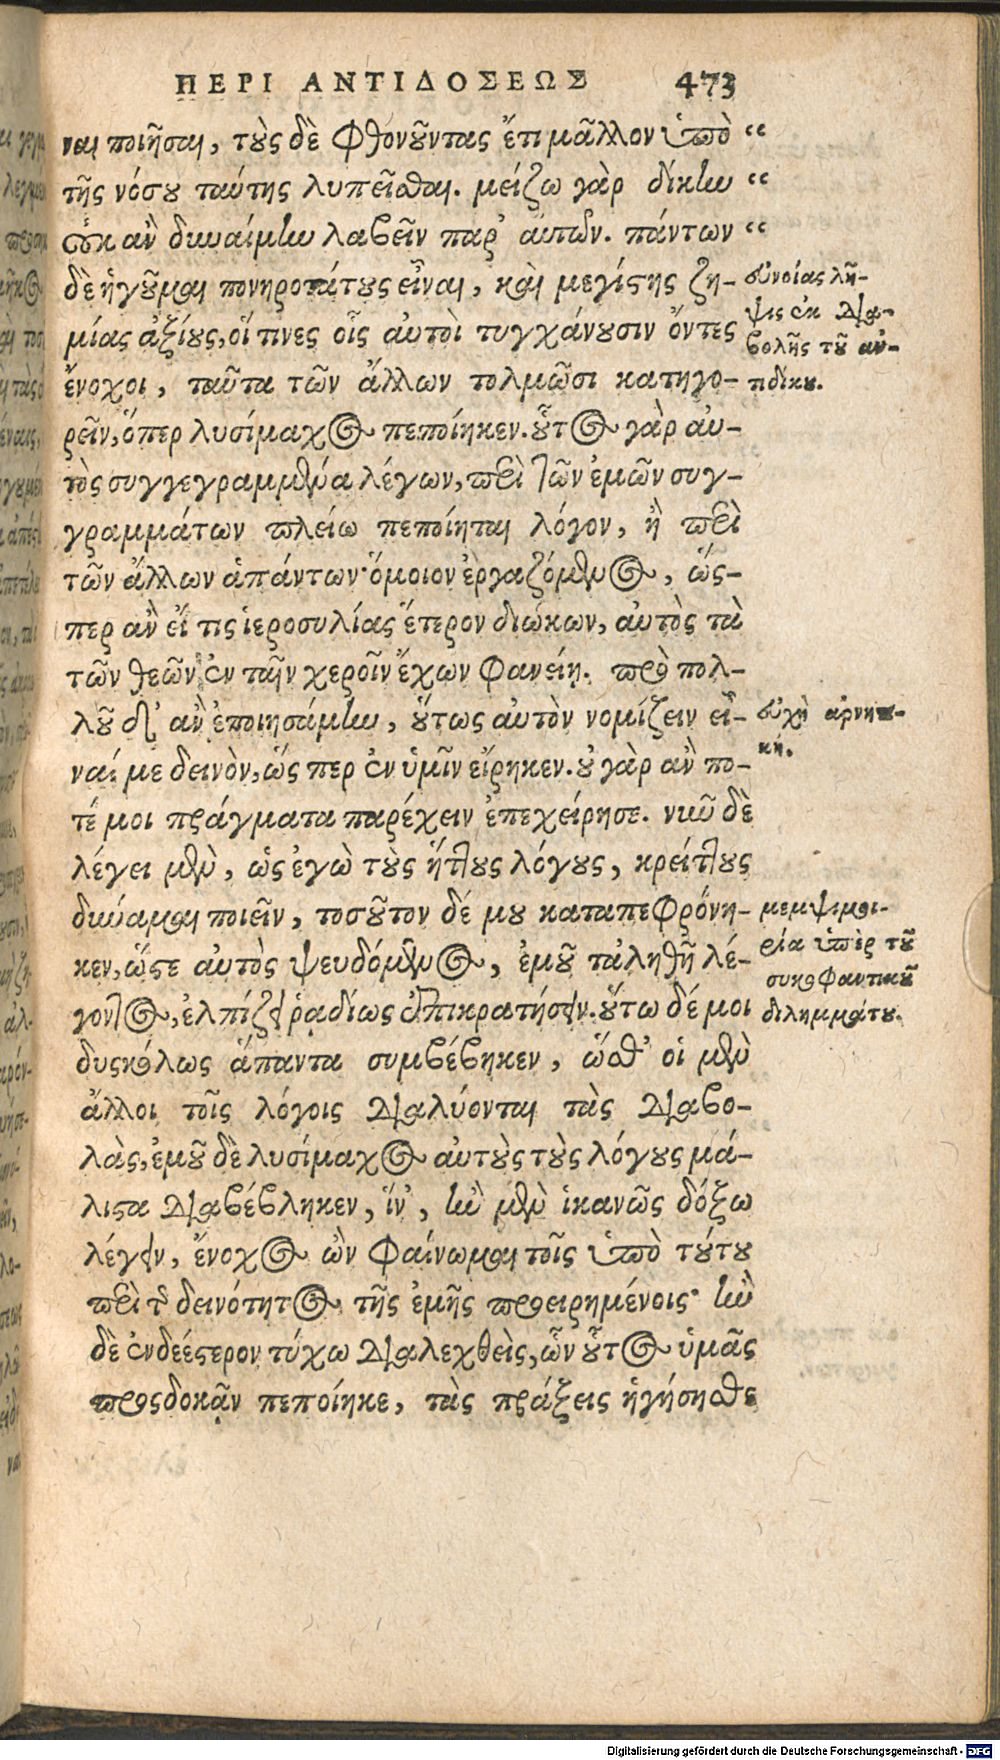 ΠΕΡΙ ΑΝΤΙΔΟΣΕΩΣ 473
ναι ποιῆσαι, τοὺς δὲ φθονοῦντας ἔτι μᾶλλον ὑπὸ “
τῆς νόσου ταύτης λυπεῖσθαι. μείζω γὰρ δίκην “
οὐκ ἂν δυναίμην λαβεῖν παρ’ αὐτῶν. πάντων “
δὲ ἡγοῦμαι πονηροτάτους εἶναι, καὶ μεγίστης ζη-
μίας ἀξίους, οἵ τινες οἷς αὐτοὶ τυγχάνουσιν ὄντες
ἔνοχοι, ταῦτα τῶν ἄλλων τολμῶσι κατηγο-
ρεῖν, ὅπερ λυσίμαχος πεποίηκεν. οὗτος γὰρ αὐ-
τὸς συγγεγραμμένα λέγων, περὶ τῶν ἐμῶν συγ-
γραμμάτων πλείω πεποίηται λόγον, ἢ περὶ
τῶν ἄλλων ἁπάντων· ὅμοιον ἐργαζόμενος, ὥς-
περ ἂν εἴ τις ἱεροσυλίας ἕτερον διώκων, αὐτὸς τὰ
τῶν θεῶν ἐν ταῖν χεροῖν ἔχων φανείη. πρὸ πολ-
λοῦ δ’ ἂν ἐποιησάμην, οὕτως αὐτὸν νομίζειν εἶ-
ναί με δεινὸν, ὥς περ ἐν ὑμῖν εἴρηκεν. οὐ γὰρ ἂν πο-
τέ μοι πράγματα παρέχειν ἐπεχείρησε. νῦν δὲ
λέγει μὲν, ὡς ἐγὼ τοὺς ἥττους λόγους, κρείττους
δύναμαι ποιεῖν, τοσοῦτον δέ μου καταπεφρόνη-
κεν, ὥστε αὐτὸς ψευδόμενος, ἐμοῦ τἀληθῆ λέ-
γοντος, ἐλπίζει ῥᾳδίως ἐπικρατήσειν. οὕτω δέ μοι
δυσκόλως ἅπαντα συμβέβηκεν, ὥσθ’ οἱ μὲν
ἄλλοι τοῖς λόγοις διαλύονται τὰς διαβο-
λὰς, ἐμοῦ δὲ λυσίμαχος αὐτοὺς τοὺς λόγους μά-
λιστα διαβέβληκεν, ἵν’, ἢν μὲν ἱκανῶς δόξω
λέγειν, ἔνοχος ὢν φαίνωμαι τοῖς ὑπὸ τούτου
περὶ τῆς δεινότητος τῆς ἐμῆς προειρημένοις· ἢν
δὲ ἐνδεέστερον τύχω διαλεχθεὶς, ὧν οὗτος ὑμᾶς
προςδοκᾷν πεποίηκε, τὰς πράξεις ἡγήσησθε
συνοίας λῆ-
ψις ἐκ δια-
βολῆς τοῦ ἀν-
τιδίκου.
εὐχὴ ἀρνητι-
κή.
μεμψιμοι-
ρία ὑπὲρ τοῦ
συκοφαντικοῦ
διλημμάτου.
Digitalisierung gefördert durch die Deutsche Forschungsgemeinschaft - DFG